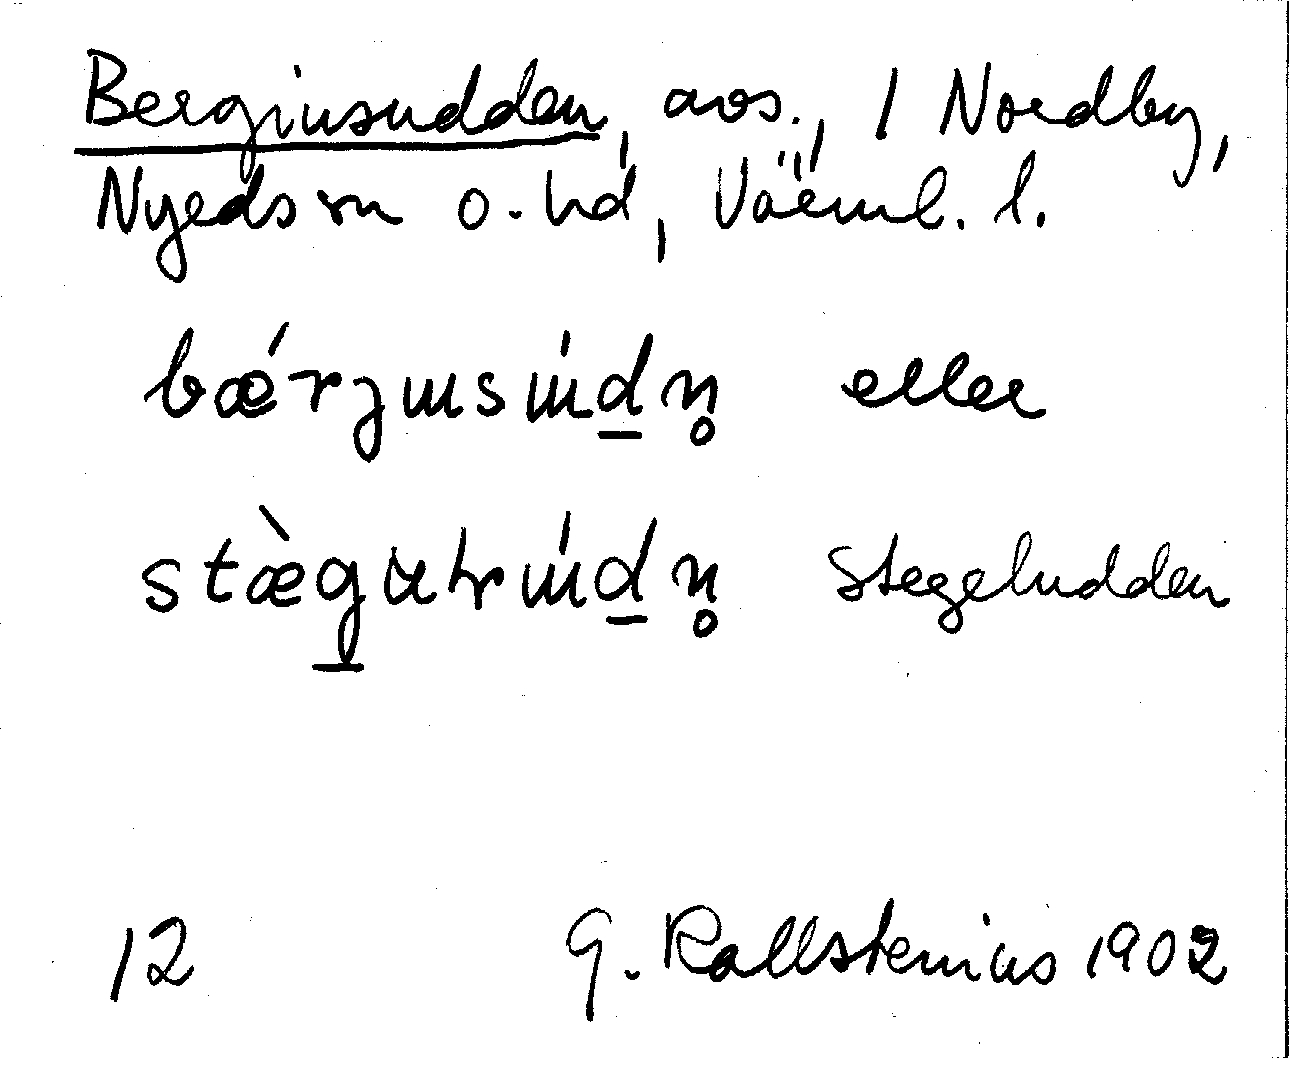 Bergiusudden, avs., 1 Nordby,
Nyeds sn o. hd, Värml. l.
bǽrȷɯsɯ́d̲n̥ eller
stæ̀g̲ɯɽɯ́d̲n̥ Stegeludden
12 G. Kallstenius 1902